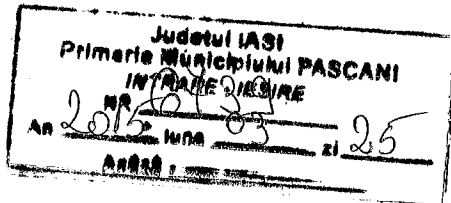 Judetul IASI
Primaria Municipiului PASCANI
INTRARE - IESIRE
NR.
An 2015 luna 03 zi 25
Anexă :